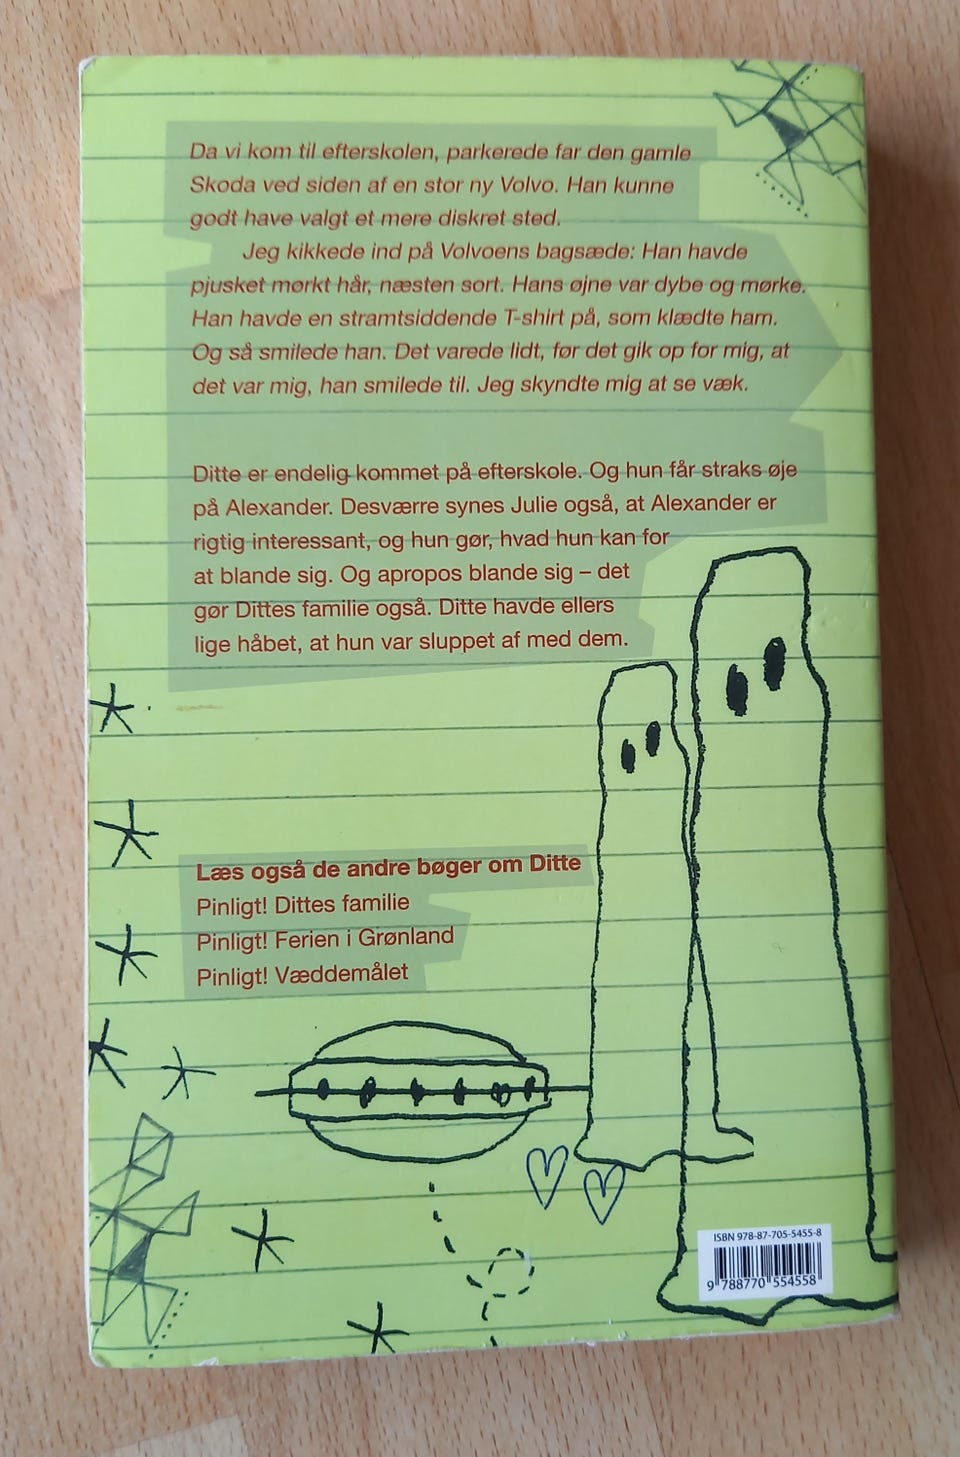 Da vi kom til efterskolen, parkerede far den gamle
Skoda ved siden af en stor ny Volvo. Han kunne
godt have valgt et mere diskret sted.
Jeg kikkede ind på Volvoens bagsæde: Han havde
pjusket mørkt hår, næsten sort. Hans øjne var dybe og mørke.
Han havde en stramtsiddende T-shirt på, som klædte ham.
Og så smilede han. Det varede lidt, før det gik op for mig, at
det var mig, han smilede til. Jeg skyndte mig at se væk.
Ditte er endelig kommet på efterskole. Og hun får straks øje
på Alexander. Desværre synes Julie også, at Alexander er
rigtig interessant, og hun gør, hvad hun kan for
at blande sig. Og apropos blande sig – det
gør Dittes familie også. Ditte havde ellers
lige håbet, at hun var sluppet af med dem.
Læs også de andre bøger om Ditte
Pinligt! Dittes familie
Pinligt! Ferien i Grønland
Pinligt! Væddemålet
ISBN 978-87-705-5455-8
9 788770 554558